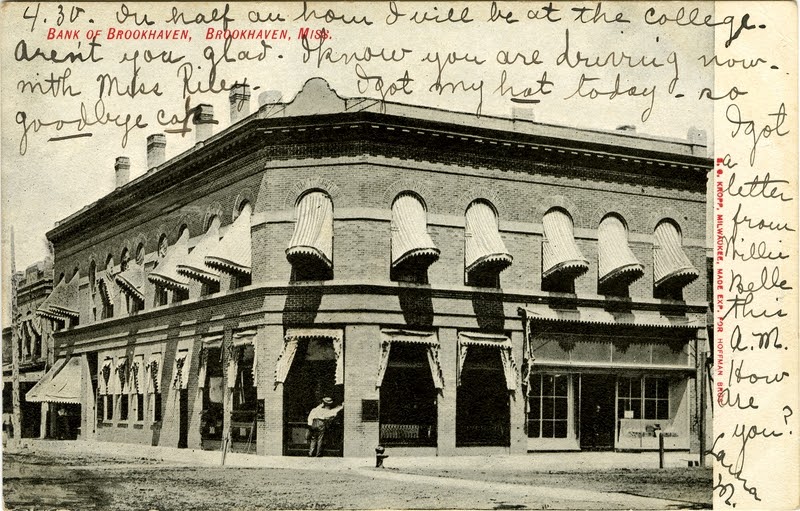 4.30. In half an hour I will be at the college.
BANK OF BROOKHAVEN, BROOKHAVEN, MISS.
Aren't you glad. I know you are driving now.
with Miss Riley. I got my hat today - so
goodbye cap.
I got
a
letter
from
Willie
Belle
this
A.M.
How
are
you?
Laura
M.
E. C. KROPP, MILWAUKEE, MADE EXP. FOR HOFFMAN BROS